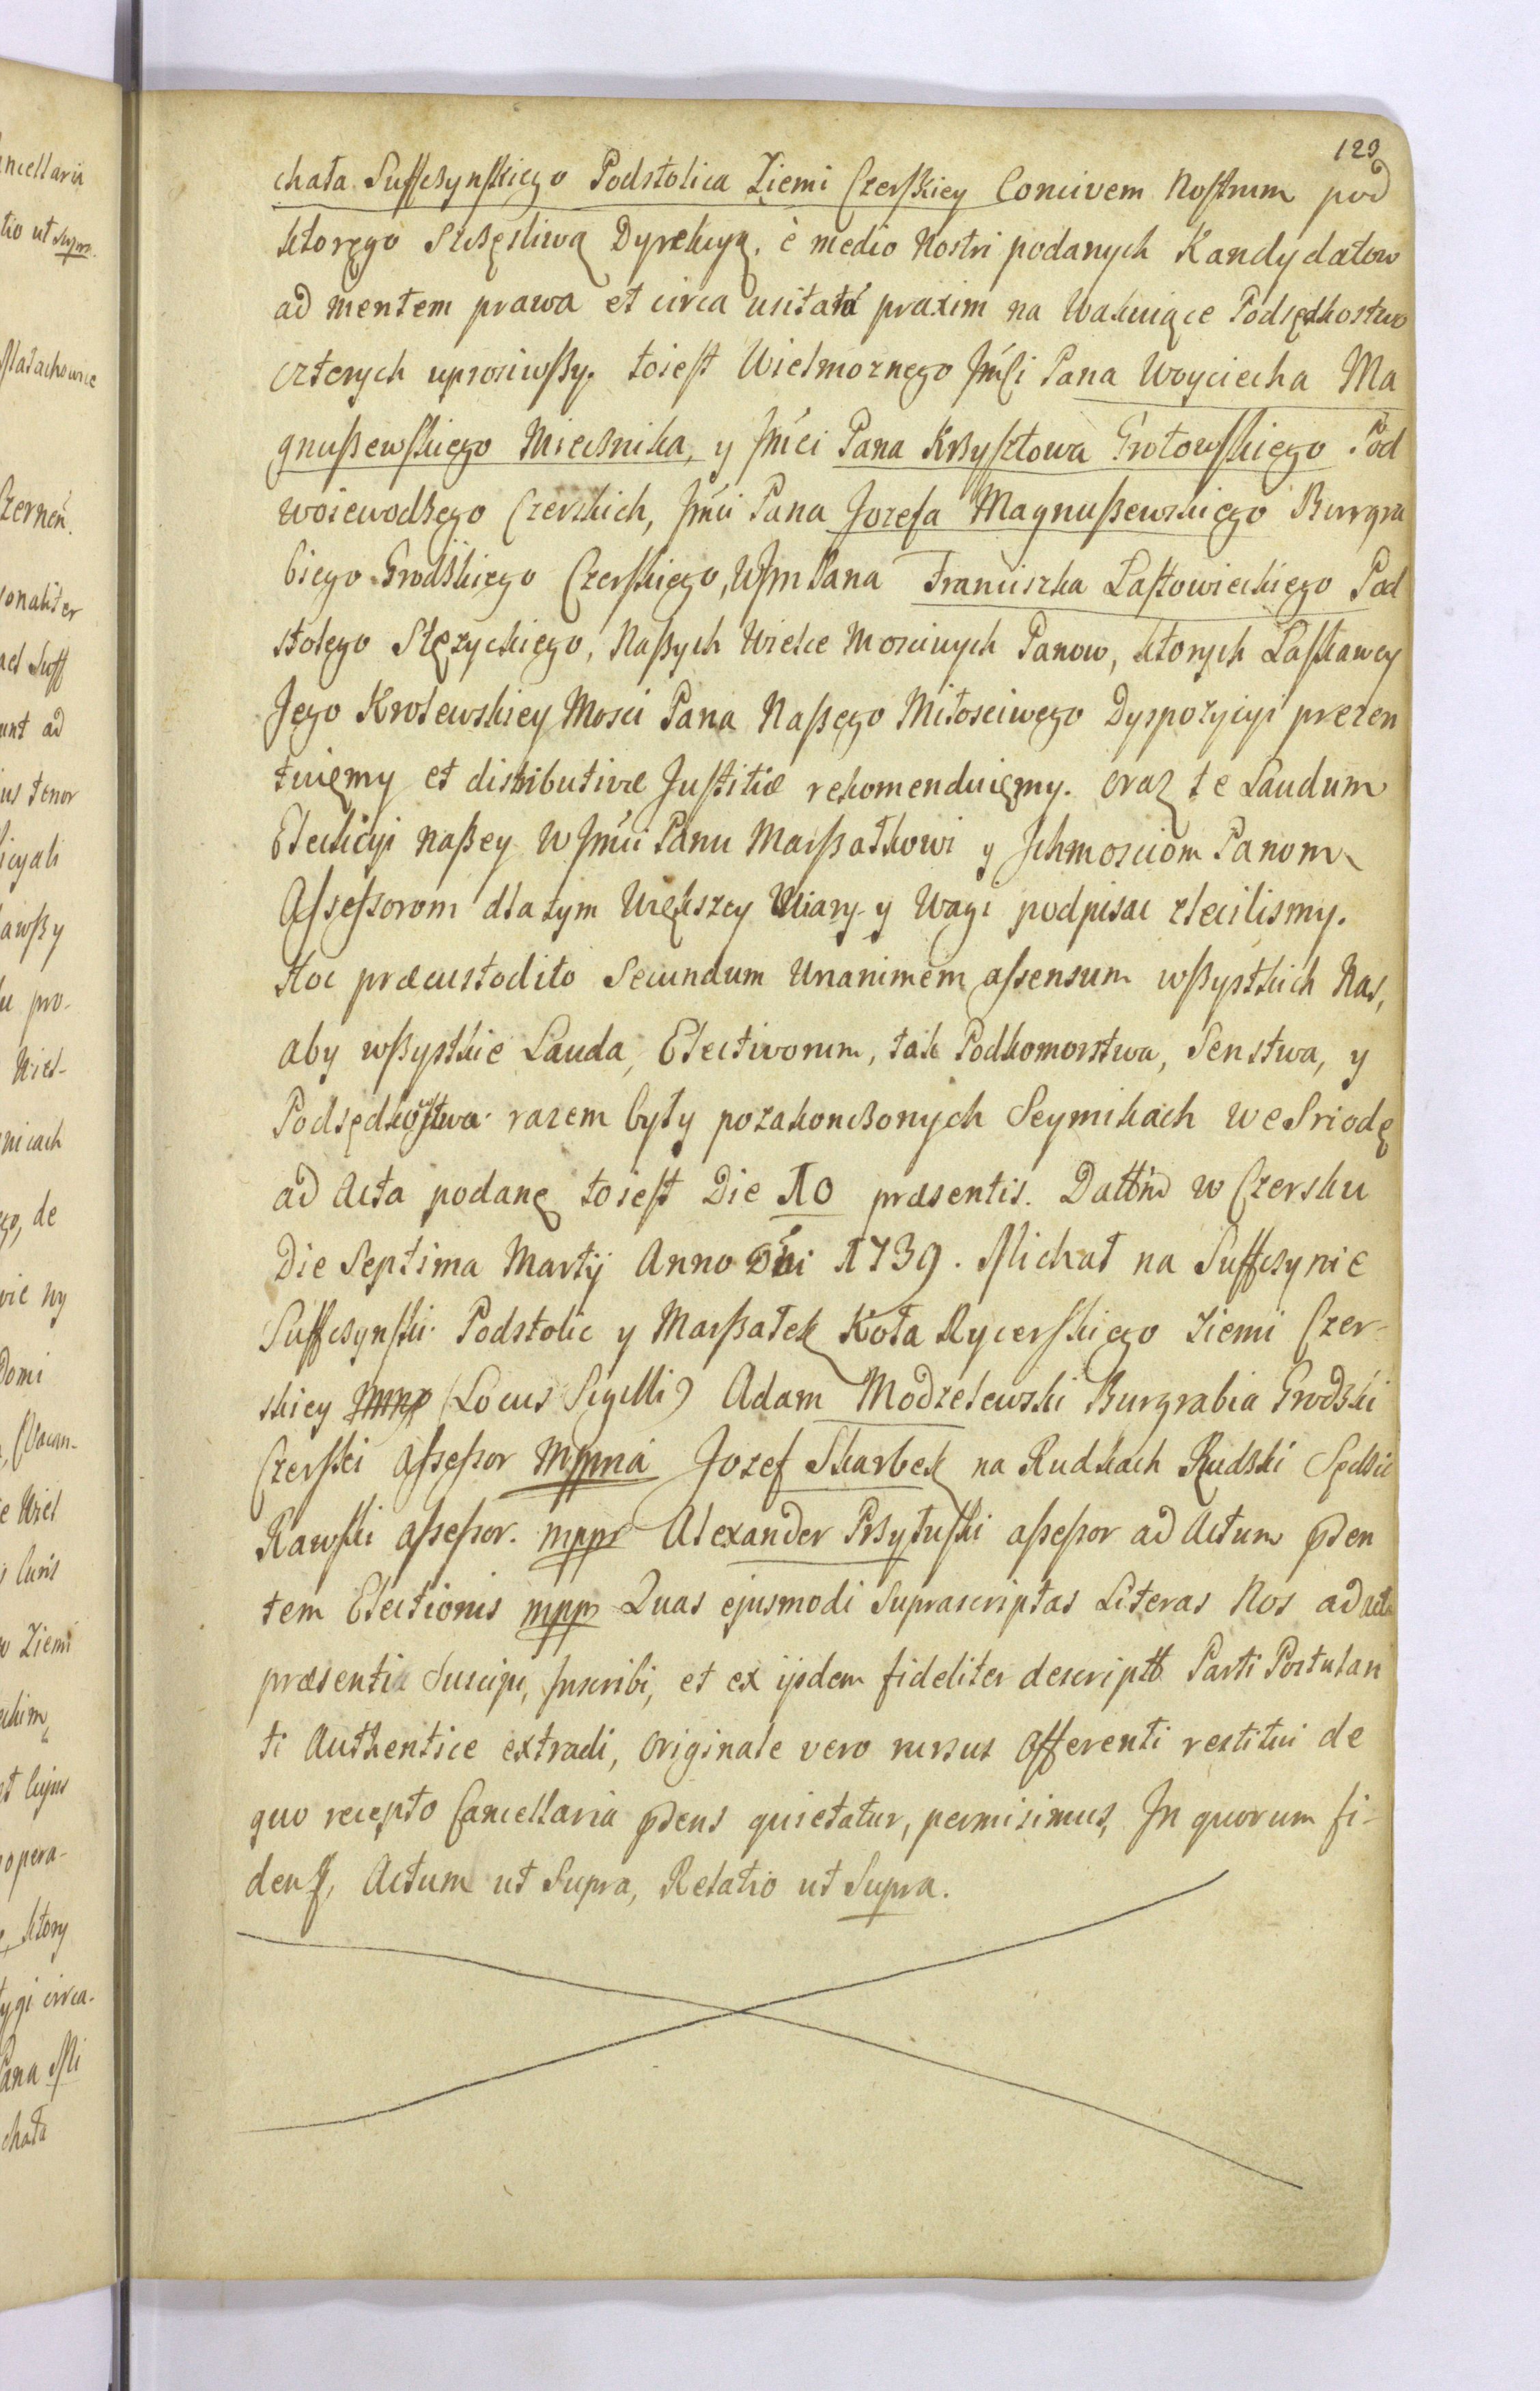 123
chała Suffczynskiego Podstolica Ziemi Czerskiey Concivem Nostrum pod
ktorego Szczęsliwą Dyrekcyą, è medio Nostri podanych Kandydatow
ad mentem prawa et circa usitatá praxim na Wakuiące Podsędkostwo
czterych uprosiwszy. toiest Wielmoznego Jmści Pana Woyciecha Ma
gnuszewskiego Miecznika, y Jmći Pana Krzysztowa Grotowskiego Pod
woiewodzego Czerskich, Jmći Pana Jozefa Magnuszewskiego Burgra
biego Grodzkiego Czerskiego, WJm Pana Franciszka Lastowieckiego Pod
stolego Stęzyckiego, Naszych Wielce Moscinych Panow, ktorych Laskawey
Jego Krolewskiey Mosci Pana Naszego Miłosciwego Dyspozycyi prezen
tuięmy et distributivæ Justitiæ rekomenduięmy. oraz te Laudum
Elekcyi naszey WJmći Panu Marszałkowi y Jchmosciom Panom
Assessorom dla tym Większey Wiary y Wagi podpisac zlecilismy.
Hoc præcustodito Secundum Unanimem assensum wszystkich Nas,
aby wszystkie Lauda, Electivorum, tak Podkomorstwa, Senstwa, y
Podsędkostwa razem były pozakonczonych Seymikach we Sriodę
ad Acta podanę toiest Die 10 præsentis. Dattm̃ w Czersku
Die Septima Martij Anno Dńi 1739. Michał na Suffczynie
Suffczynski Podstolic y Marszałek Koła Rycerskiego Ziemi Czer-
skiey mpp (Locus Sigilli) Adam Modzelewski Burgrabia Grodzki
Czerski Assessor Mppria Jozef Skarbek na Rudkach Rudzki Sędzic
Rawski assessor. mppr Alexander Przytuski assessor ad Actum pden
tem Electionis mppr Quas ejusmodi Suprascriptas Literas Nos ad acta
præsentia Suscipi, Inscribi, et ex ijsdem fideliter descriptt Parti Postulan
ti Authentice extradi, Originale vero rursus Offerenti restitui de
quo recepto Cancellaria pdens quietatur, permisimus, In quorum fi-
dem, Actum ut Supra, Relatio ut Supra.